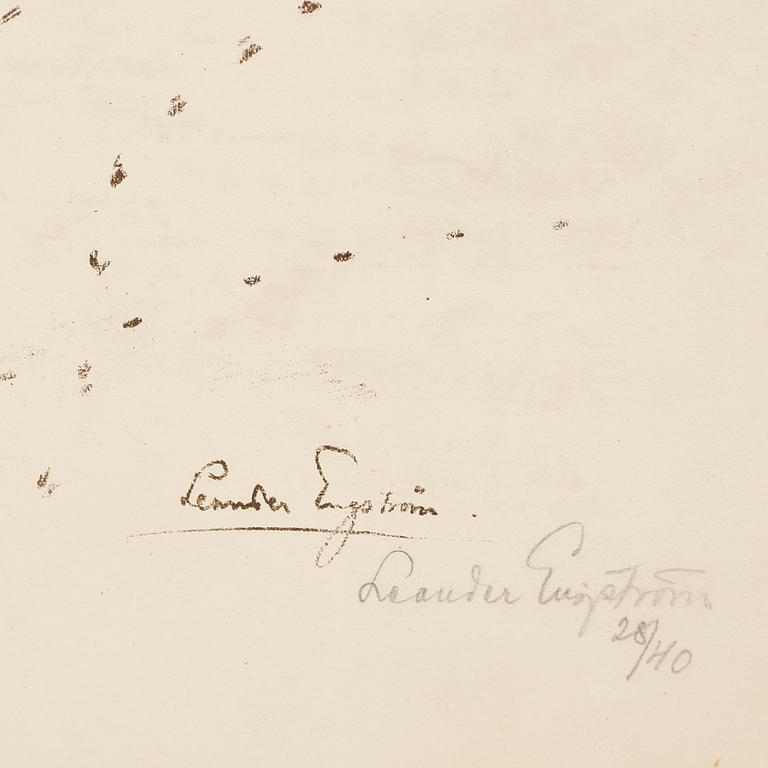 Leander Engström.
Leander Engström
28/40